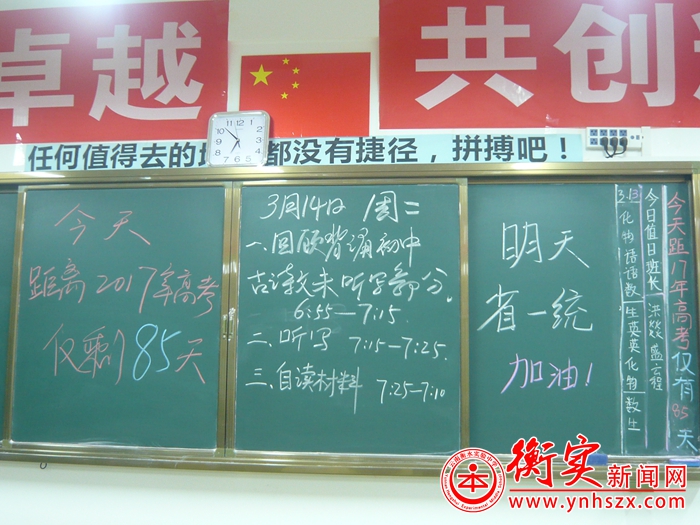 卓越
共创
任何值得去的地
都没有捷径，拼搏吧！
今天
距离2017年高考
仅剩85天
3月14日 周二
一、回顾背诵初中
古诗文未听写部分。
6:55—7:15
二、听写 7:15—7:25.
三、自读材料 7:25—7:10
明天
省一统
加油！
3.13
化物语语数 生英英化物数生
今日值日班长
今天距17年高考仅有85天
衡实新闻网
www.ynhszx.com